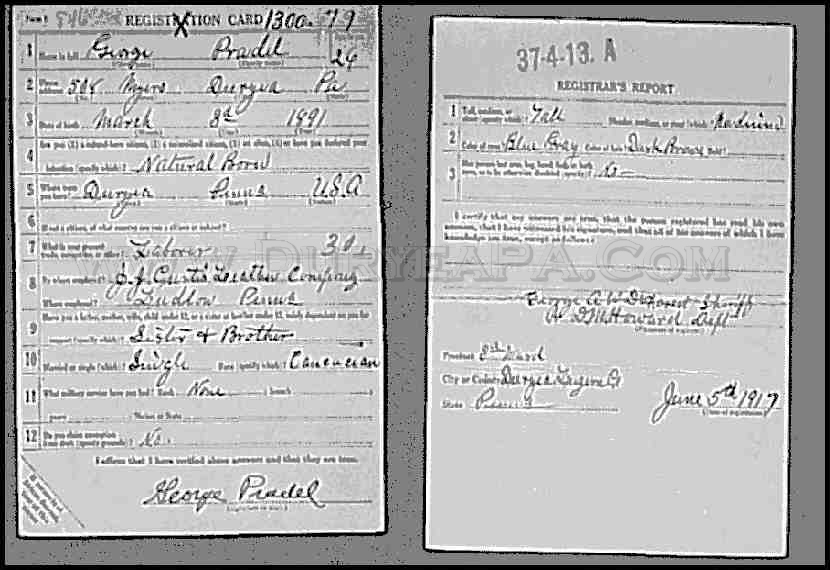 Form 1 REGISTRATION CARD 1300 79
1 Name in full George Pradel 26
2 Home address 508 Myers Duryea Pa
3 Date of birth March 8th 1891
4 Are you (1) a natural-born citizen, (2) a naturalized citizen, (3) an alien, (4) or have you declared your
intention (specify which)? Natural Born
5 Where were you born? Duryea Penna USA
6 If not a citizen, of what country are you a citizen or subject?
7 What is your present trade, occupation, or office? Laborer
8 By whom employed? Curtis Leather Company
Where employed? Ludlow Penna
9 Have you a father, mother, wife, child under 12, or a sister or brother under 12, solely dependent on you for
support (specify which)? Sister & Brother
10 Married or single (which)? Single Race (specify which)? Caucasian
11 What military service have you had? Rank None branch
years Nation or State
12 Do you claim exemption from draft (specify grounds)? No.
I affirm that I have verified above answers and that they are true.
George Pradel
37-4-13. A
REGISTRAR'S REPORT
1 Tall, medium, or short (specify which)? Tall Slender, medium, or stout (which)? Medium
2 Color of eyes? Blue Gray Color of hair? Dark Brown Bald?
3 Has person lost arm, leg, hand, foot, or both
eyes, or is he otherwise disabled (specify)? No
I certify that my answers are true, that the person registered has read his own
answers, that I have witnessed his signature, and that all of his answers of which I have
knowledge are true, except as follows:
www.DuryeaPA.com
Sheriff
Howard Dept
Precinct Ward
City or County Duryea Luzerne Co
State Penna
June 5th 1917